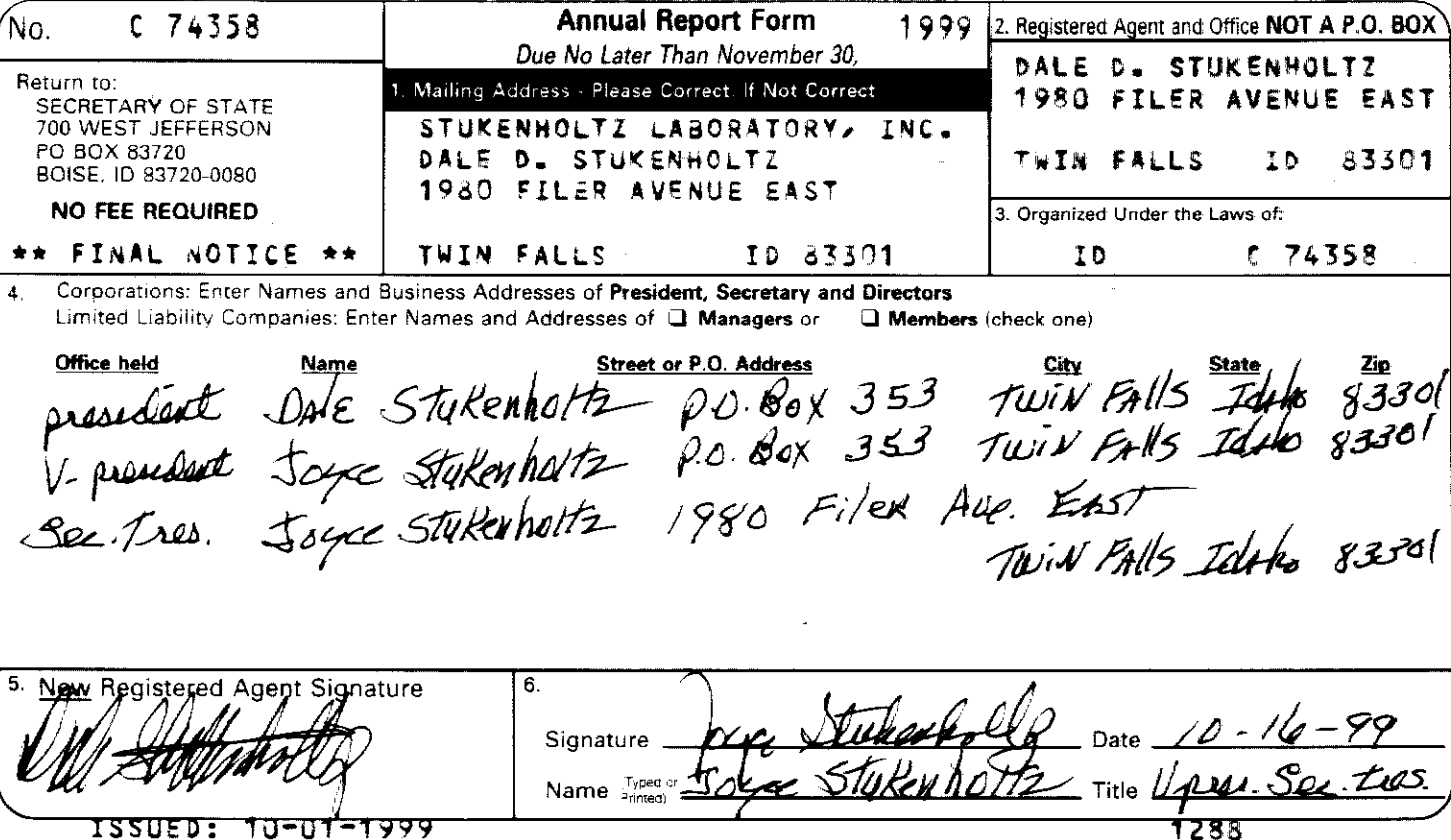 No. C 74358
Return to:
SECRETARY OF STATE
700 WEST JEFFERSON
PO BOX 83720
BOISE, ID 83720-0080
NO FEE REQUIRED
** FINAL NOTICE **
Annual Report Form 1999
Due No Later Than November 30,
1. Mailing Address - Please Correct, If Not Correct
STUKENHOLTZ LABORATORY, INC.
DALE D. STUKENHOLTZ
1980 FILER AVENUE EAST
TWIN FALLS ID 83301
2. Registered Agent and Office NOT A P.O. BOX
DALE D. STUKENHOLTZ
1980 FILER AVENUE EAST
TWIN FALLS ID 83301
3. Organized Under the Laws of:
ID C 74358
4. Corporations: Enter Names and Business Addresses of President, Secretary and Directors
Limited Liability Companies: Enter Names and Addresses of ❑ Managers or ❑ Members (check one)
Office held Name Street or P.O. Address City State Zip
president Dale Stukenholtz P.O. Box 353 Twin Falls Idaho 83301
V-president Joyce Stukenholtz P.O. Box 353 Twin Falls Idaho 83301
Sec. Tres. Joyce Stukenholtz 1980 Filer Ave. East
Twin Falls Idaho 83301
5. New Registered Agent Signature
6.
Signature Joyce Stukenholtz Date 10-16-99
Name (Typed or Printed) Joyce Stukenholtz Title V pres. Sec. tres.
ISSUED: 10-01-1999
1288